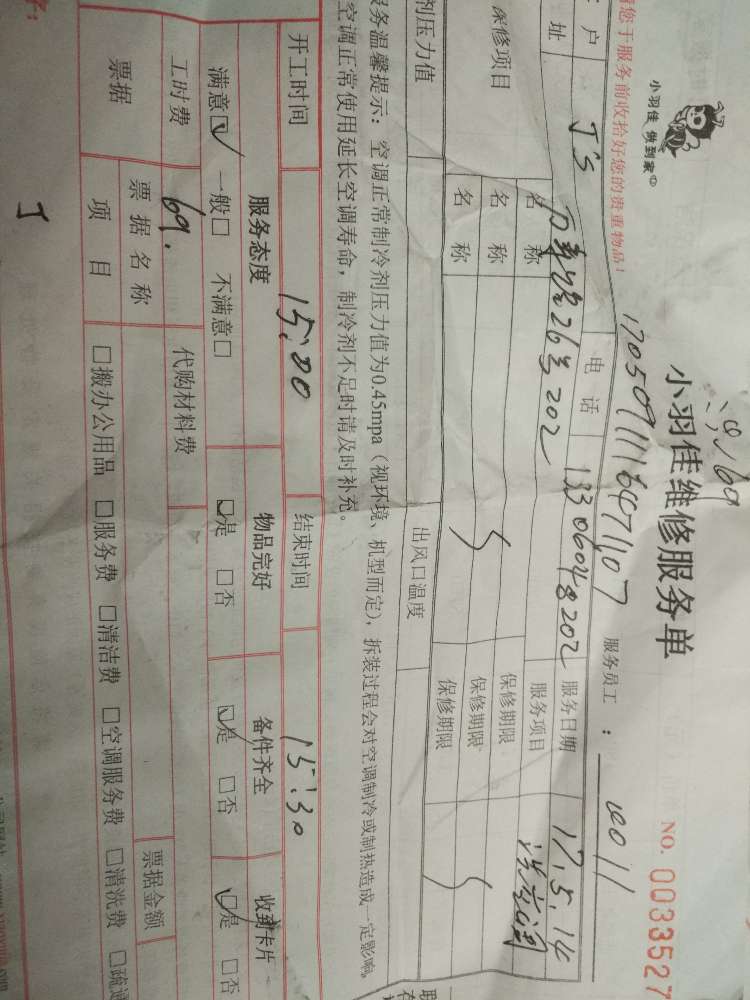 小羽佳 做到家
小羽佳维修服务单
NO. 0033527
您于服务前收拾好您的贵重物品!
服务员工:
户
电话
服务日期 17.5.14
址
26号202
服务项目 洗空调
保修项目
名称
保修期限
名称
保修期限
名称
保修期限
剂压力值
出风口温度
务温馨提示:空调正常制冷剂压力值为0.45mpa(视环境、机型而定),拆装过程会对空调制冷或制热造成一定影响。
空调正常使用延长空调寿命,制冷剂不足时请及时补充。
开工时间 15:00 结束时间 15:30
服务态度 物品完好 备件齐全 收到卡片
满意☑ 一般□ 不满意□ ☑是 □否 ☑是 □否 ☑是 □否
工时费 69. 代购材料费
票据 票据名称 票据金额
项目 □搬办公用品 □服务费 □清洁费 □空调服务费 □清洗费 □疏通